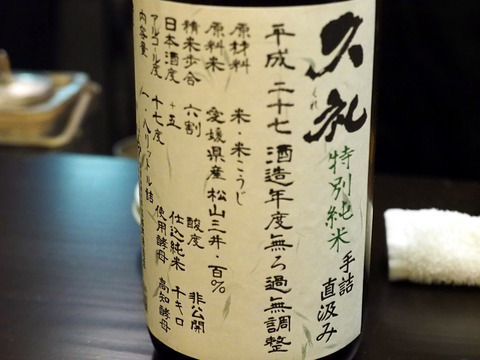 久礼
くれ
特別純米
手詰
直汲み
平成二十七酒造年度無ろ過無調整
原材料 米・米こうじ
原料米 愛媛県産松山三井・百%
精米歩合 六割
酸度 非公開
日本酒度 +五
仕込純米 千キロ
アルコール度 十七度
使用酵母 高知酵母
内容量 一・八リットル詰